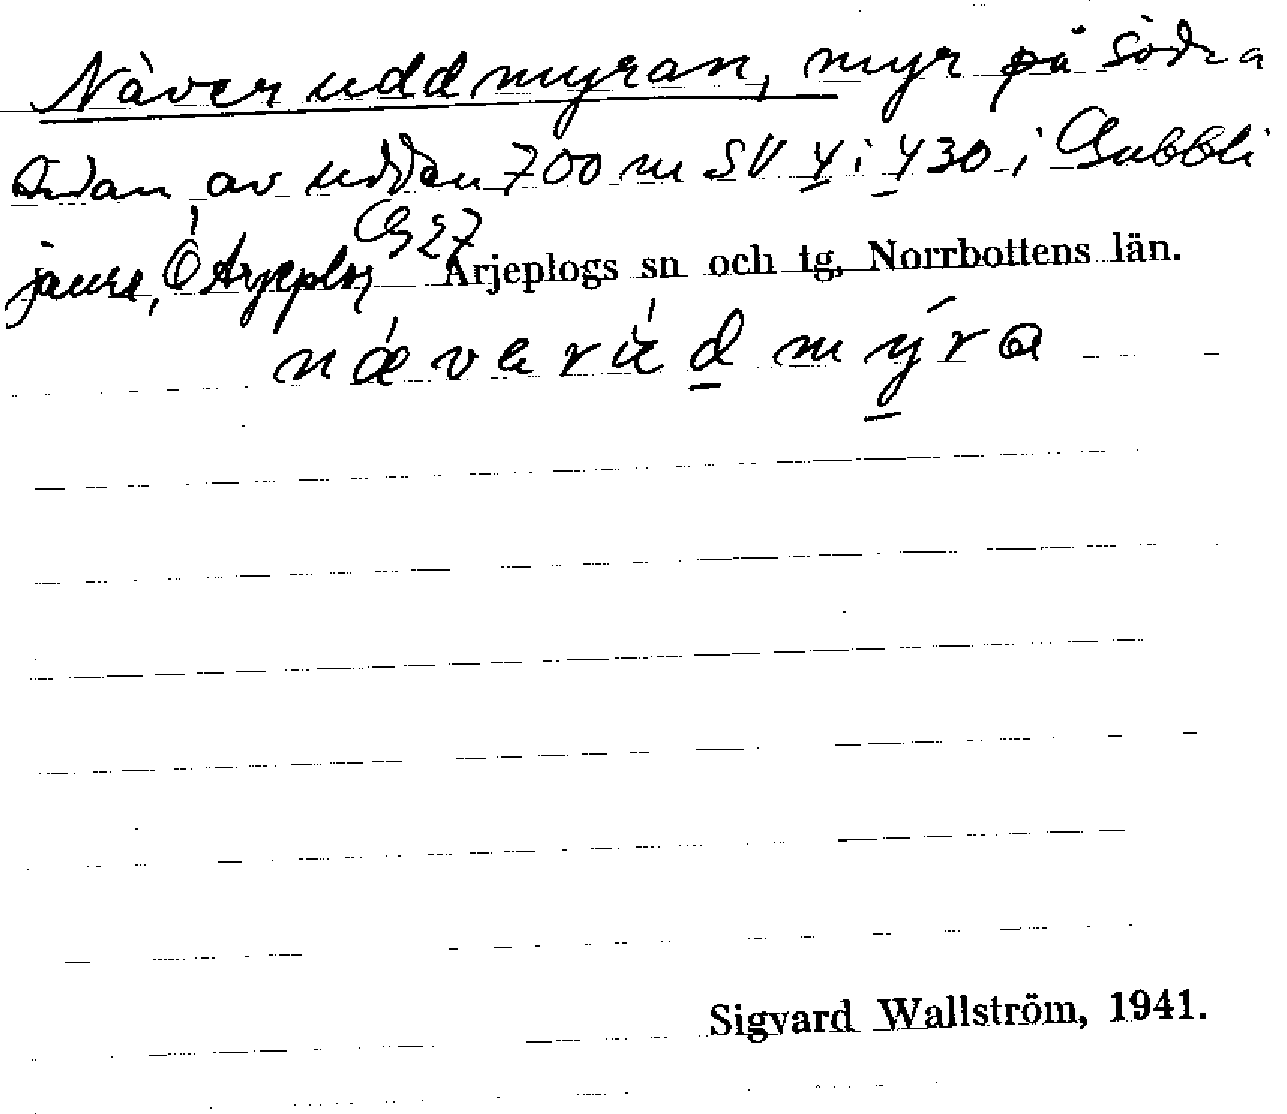 Näveruddmyran, myr på södra
sidan av udden 700 m SV y i 430 i Gubbli
jaure, Ö Arjeplog G27 Arjeplogs sn och tg, Norrbottens län.
nǽvarúdmýra
Sigvard Wallström, 1941.